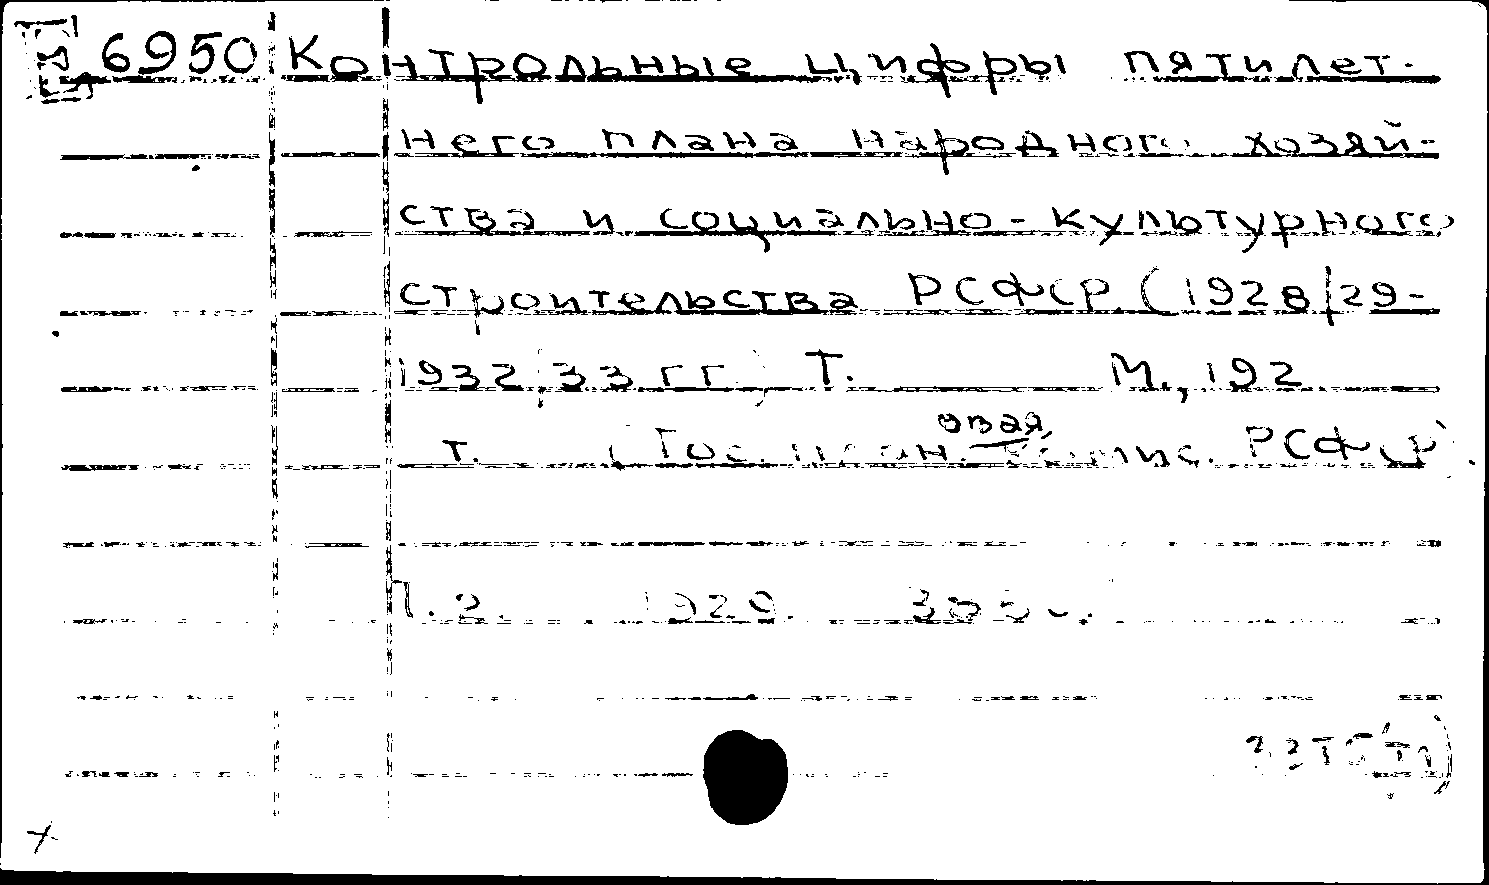 6950 Контрольные цифры пятилет-
него плана народного хозяй-
ства и социально-культурного
строительства РСФСР (1928/29-
1932/33 гг.) Т. М., 192
т. (Гос. план. овая комис. РСФСР).
Т. 2. 1929.